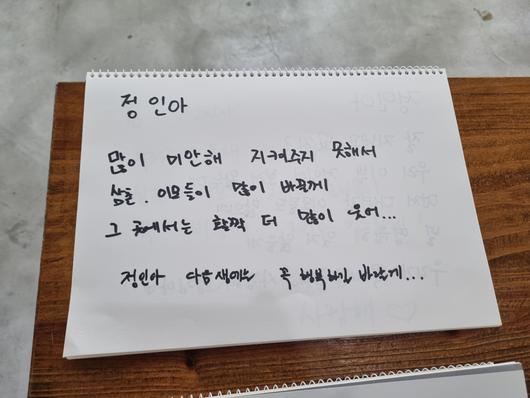 정인아
많이 미안해 지켜주지 못해서
삼촌. 이모들이 많이 바꿀게
그 곳에서는 활짝 더 많이 웃어...
정인아 다음생에는 꼭 행복하길 바랄게...